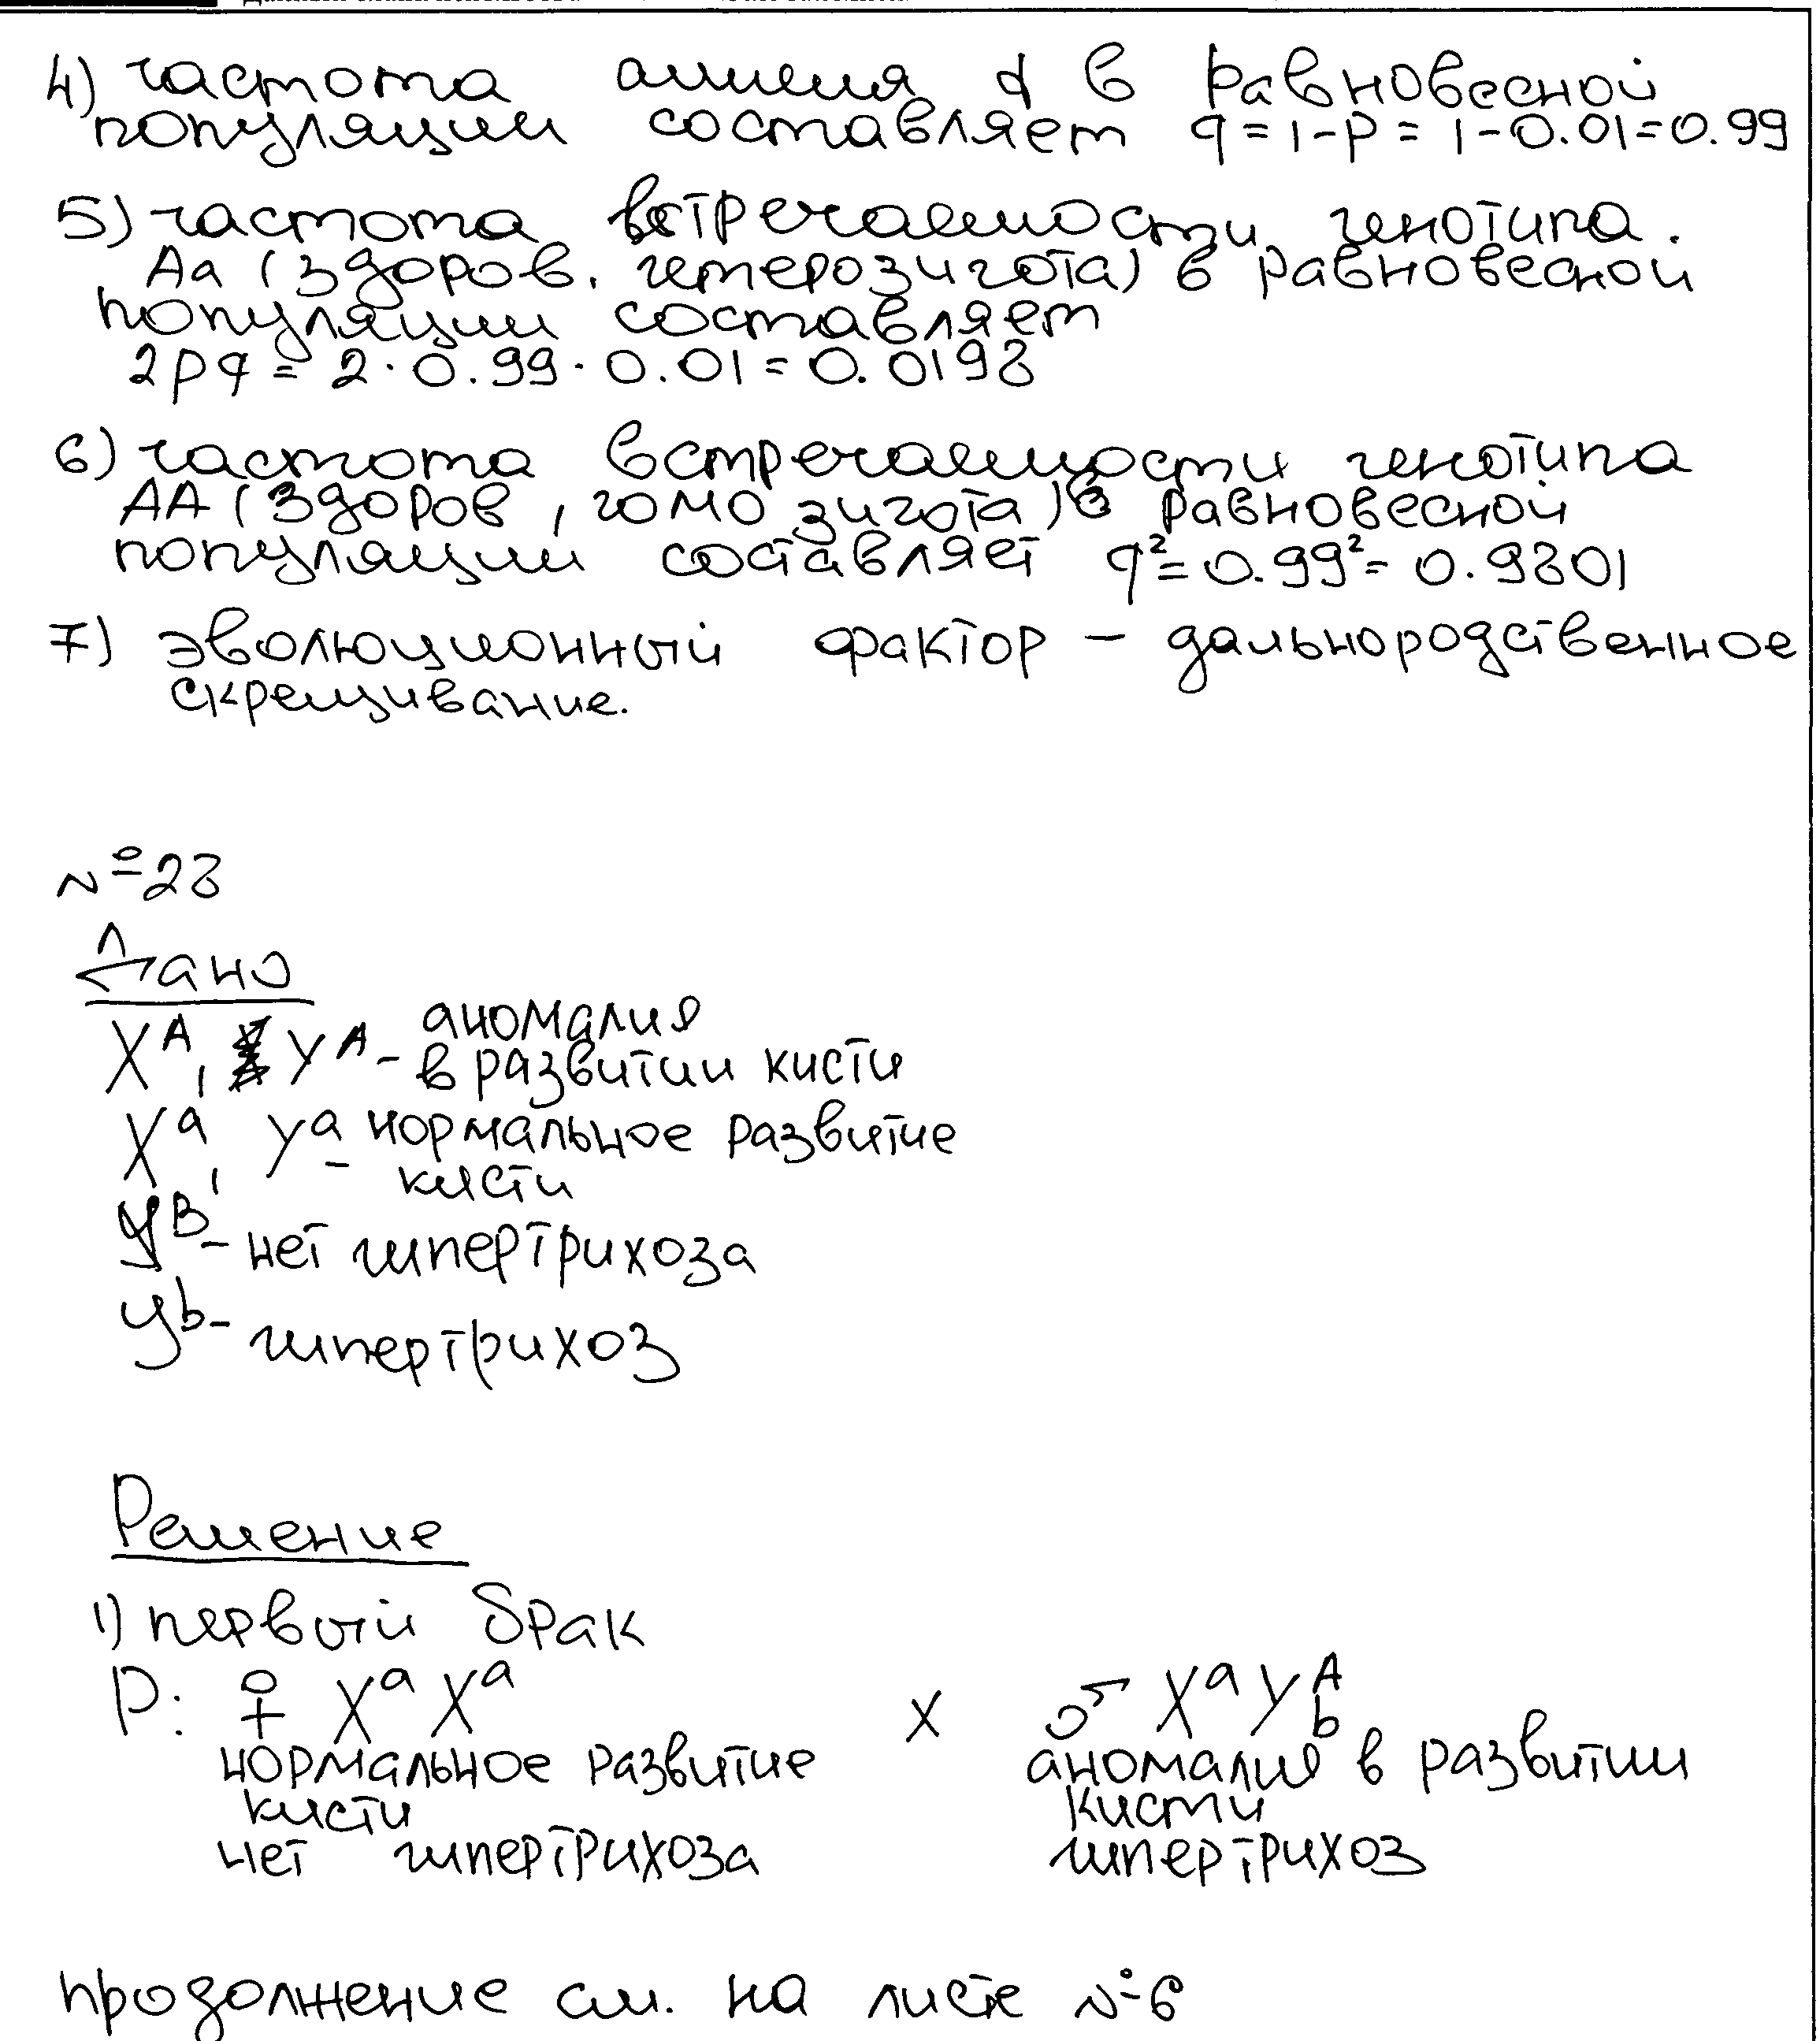 4) частота аллеля d в равновесной
популяции составляет q = 1-p = 1-0.01=0.99
5) частота встречаемости генотипа.
Aa (здоров. гетерозигота) в равновесной
популяции составляет
2pq = 2·0.99·0.01=0.0198
6) частота встречаемости генотипа
AA (здоров, гомозигота) в равновесной
популяции составляет q²=0.99²=0.9801
7) эволюционный фактор - дальнородственное
скрещивание.
№28
Дано
Xᴬ, Yᴬ- аномалия
в развитии кисти
Xᵃ, Yᵃ- нормальное развитие
кисти
Yᴮ- нет гипертрихоза
Yᵇ- гипертрихоз
Решение
1) первый брак
P: ♀ XᵃXᵃ x ♂ XᵃYᴬb
нормальное развитие аномалия в развитии
кисти кисти
нет гипертрихоза гипертрихоз
продолжение см. на листе №6